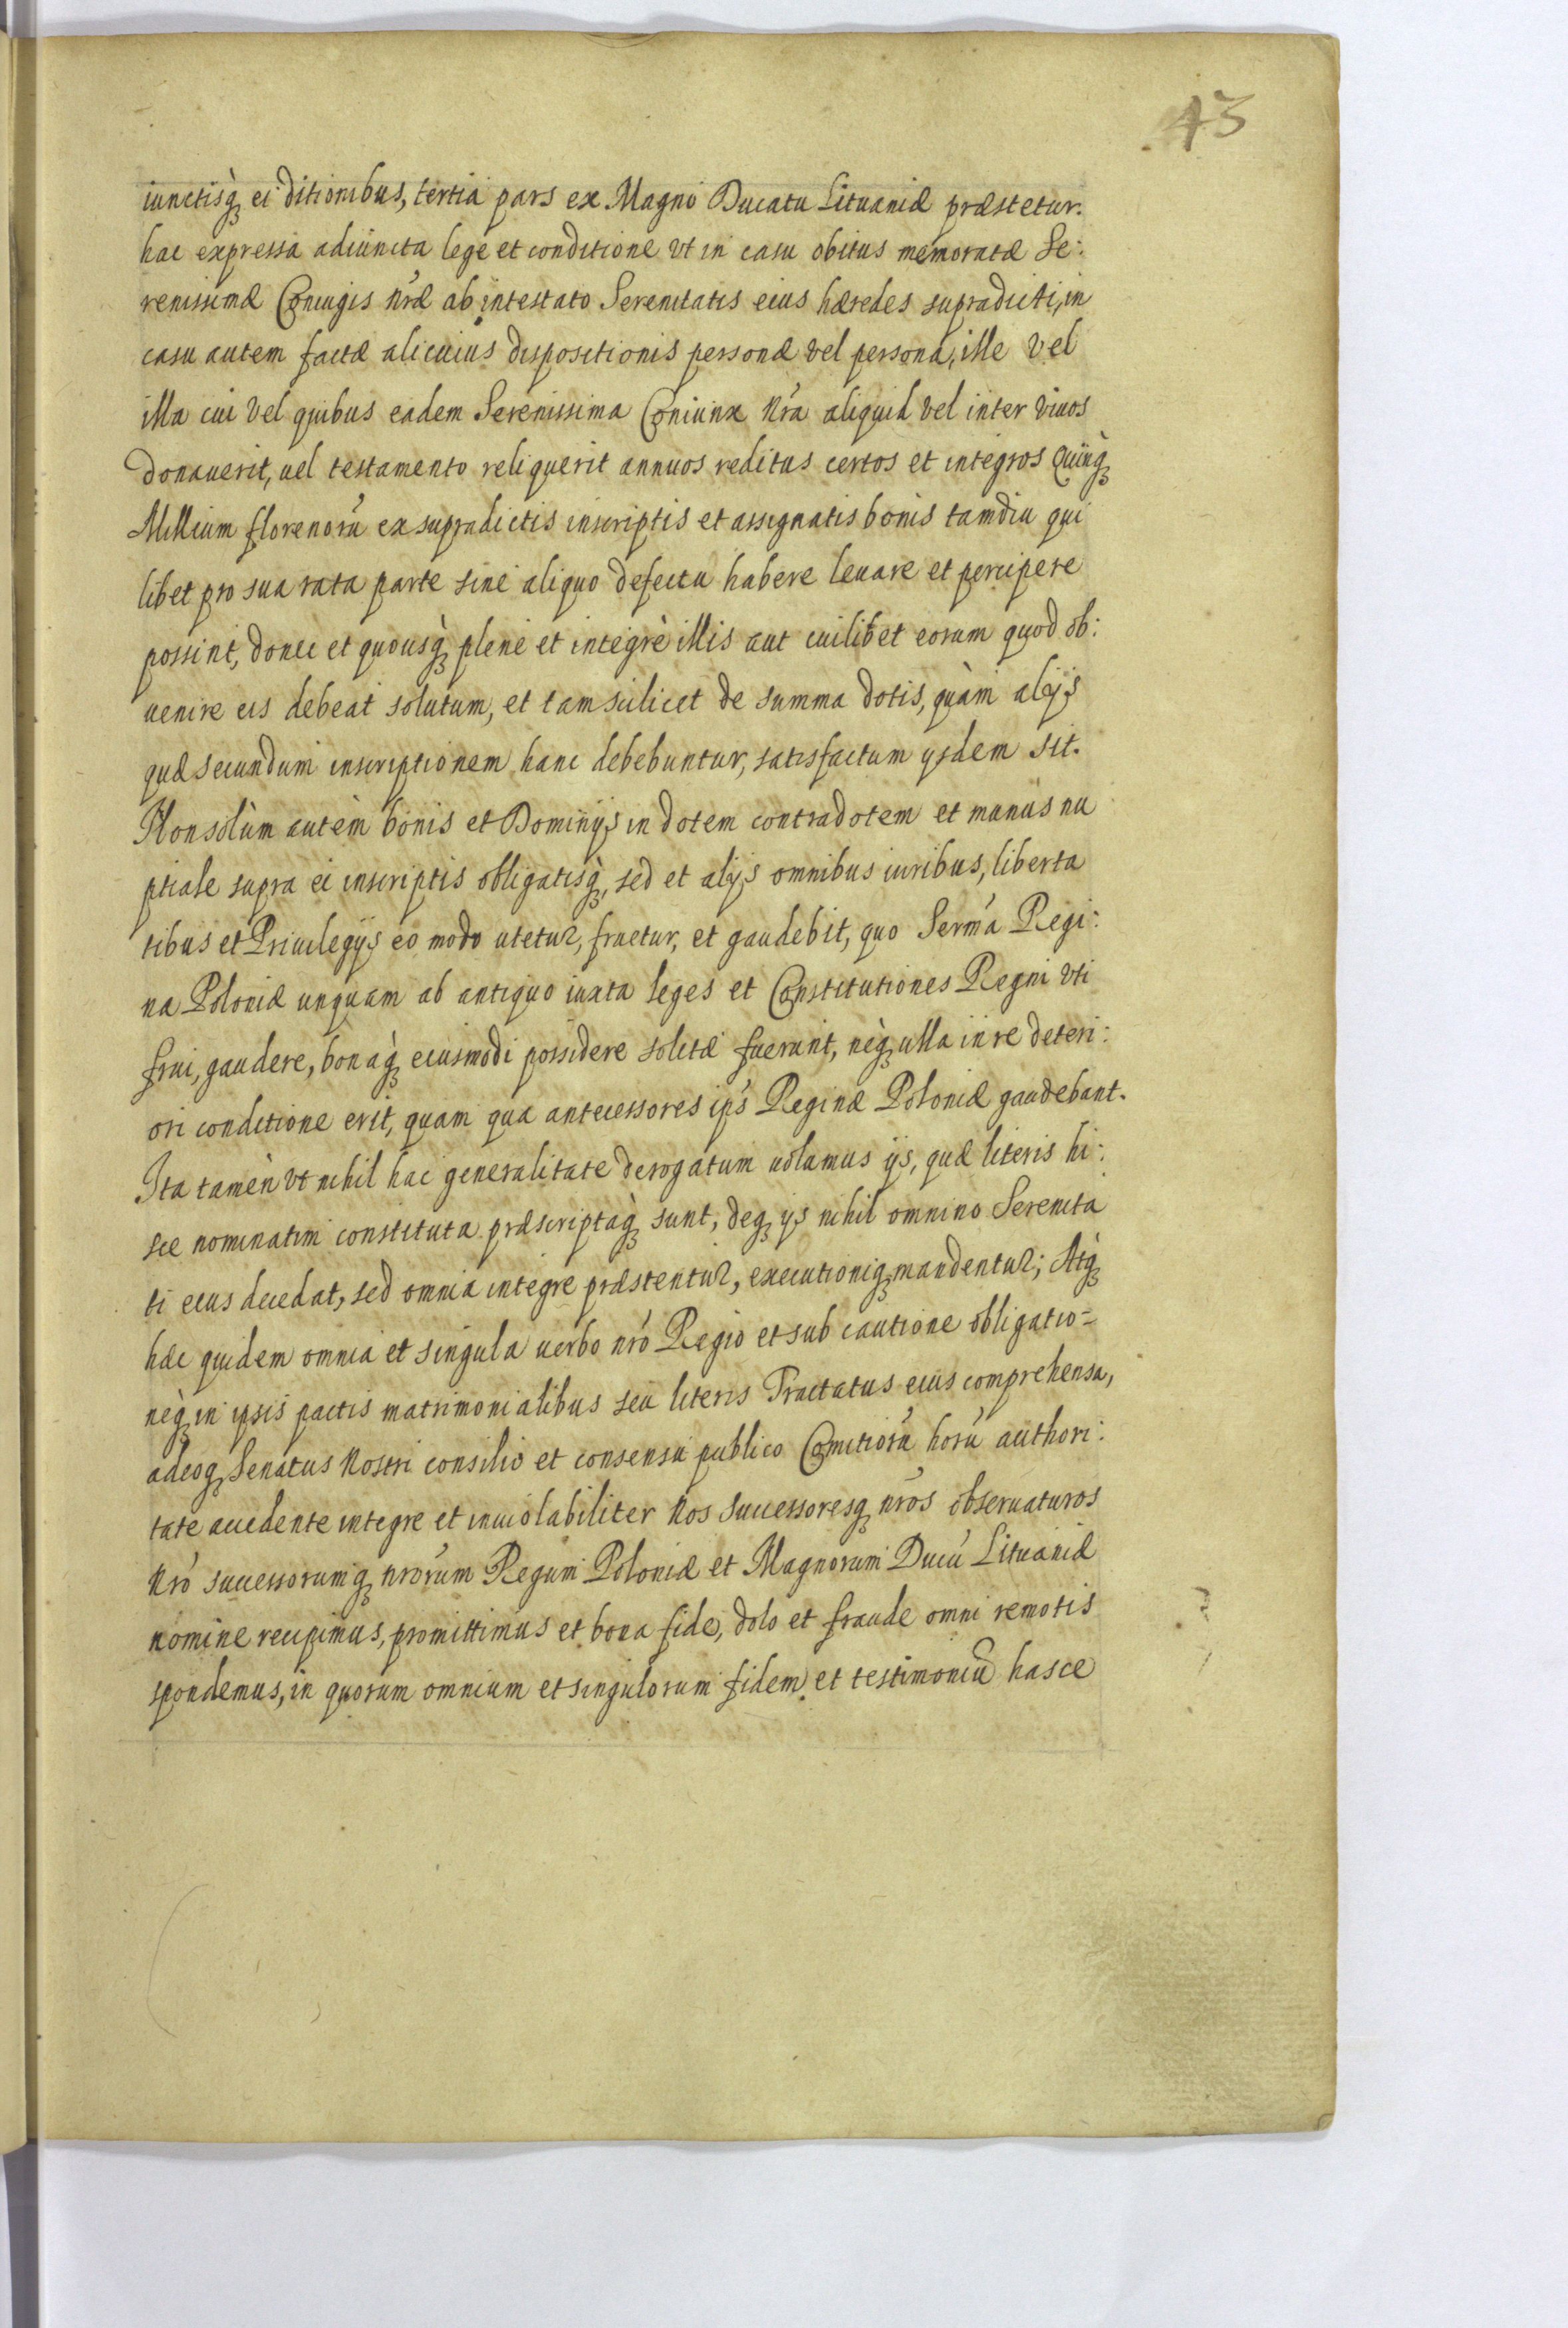 43
iunctisq̀ꝫ ei ditionibus, tertia pars ex Magno Ducatu Lituaniæ præstetur.
hac expressa adiuncta lege et conditione vt in casu obitus memoratæ Se:
renissimæ Coniugis nr̃æ ab intestato Serenitatis eius hæredes supradicti, in
casu autem factæ alicuius dispositionis personæ vel persona, ille vel
illa cui vel quibus eadem Serenissima Coniunx nr̃a aliquid vel inter viuos
donauerit, uel testamento reliquerit annuos reditus certos et integros Quinq̀ꝫ
Millium florenorũ ex supradictis inscriptis et assignatis bonis tamdiu qui
libet pro sua rata parte sine aliquo defectu habere leuare et percipere
possint, donec et quousq̀ꝫ plene et integrè illis aut cuilibet eorum quod ob:
uenire eis debeat solutum, et tam scilicet de summa dotis, quàm alijs
quæ secundum inscriptionem hanc debebuntur, satisfactum ysdem sit.
Non solùm autèm bonis et Dominijs in dotem contradotem et munus nu
ptiale supra ei inscriptis obligatisq̀ꝫ, sed et alijs omnibus iuribus, liberta
tibus et Priuilegijs eo modo utetur, fruetur, et gaudebit, quo Serm̃a Regi:
na Poloniæ unquam ab antiquo iuxta leges et Constitutiones Regni vti
frui, gaudere, bonaq̀ꝫ eiusmodi possidere solitæ fuerunt, nèqꝫ ulla in re deteri:
ori conditione erit, quam qua antecessores ips̃ Reginæ Poloniæ gaudebant.
Ita tamèn vt nihil hac generalitate derogatum uolumus ijs, quæ literis hi:
sce nominatim constituta præscriptaq̀ꝫ sunt, deqꝫ ijs nihil omnino Serenita
ti eius decedat, sed omnia integre præstentur, executioniqꝫ mandentur; Atq̀ꝫ
hæc quidem omnia et singula uerbo nr̃o Regio et sub cautione obligatio=
nèqꝫ in ipsis pactis matrimonialibus seu literis Tractatus eius comprehensa,
adeoqꝫ Senatus Nostri consilio et consensu publico Comitiorũ horũ authori:
tate accedente integre et inuiolabiliter Nos Successoresqꝫ nr̃os obseruaturos
Nr̃o successorumqꝫ nr̃orum Regum Poloniæ et Magnorum Ducũ Lituaniæ
nomine recipimus, promittimus et bona fide, dolo et fraude omni remotis
spondemus, in quorum omnium et singulorum fidem et testimoniũ hasce